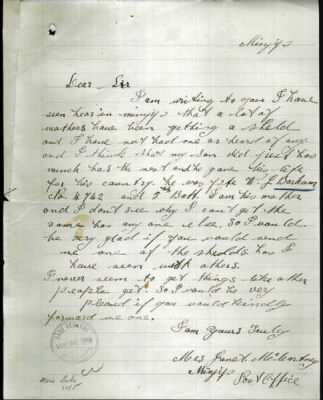 Minyip
Dear Sir
I am writing to you I have
seen hear in minyip that a lot of
mothers have been getting a sheld
and I have not had one as heard of any
and I think that my son did just has
much has the next and he gave his life
for his country. he was Pte W. J. Barham
No. 4742 and 5th Batt I am his mother
and I don't see why I can't get the
same has any one else. So I would
be very glad if you would send
me one of the shelds has I
have seen with others.
I never seem to get things like other
people get. So I would be very
pleased if you would kindly
forward me one.
I am yours truly
Mrs Janet McCartney
Minyip
Post Office